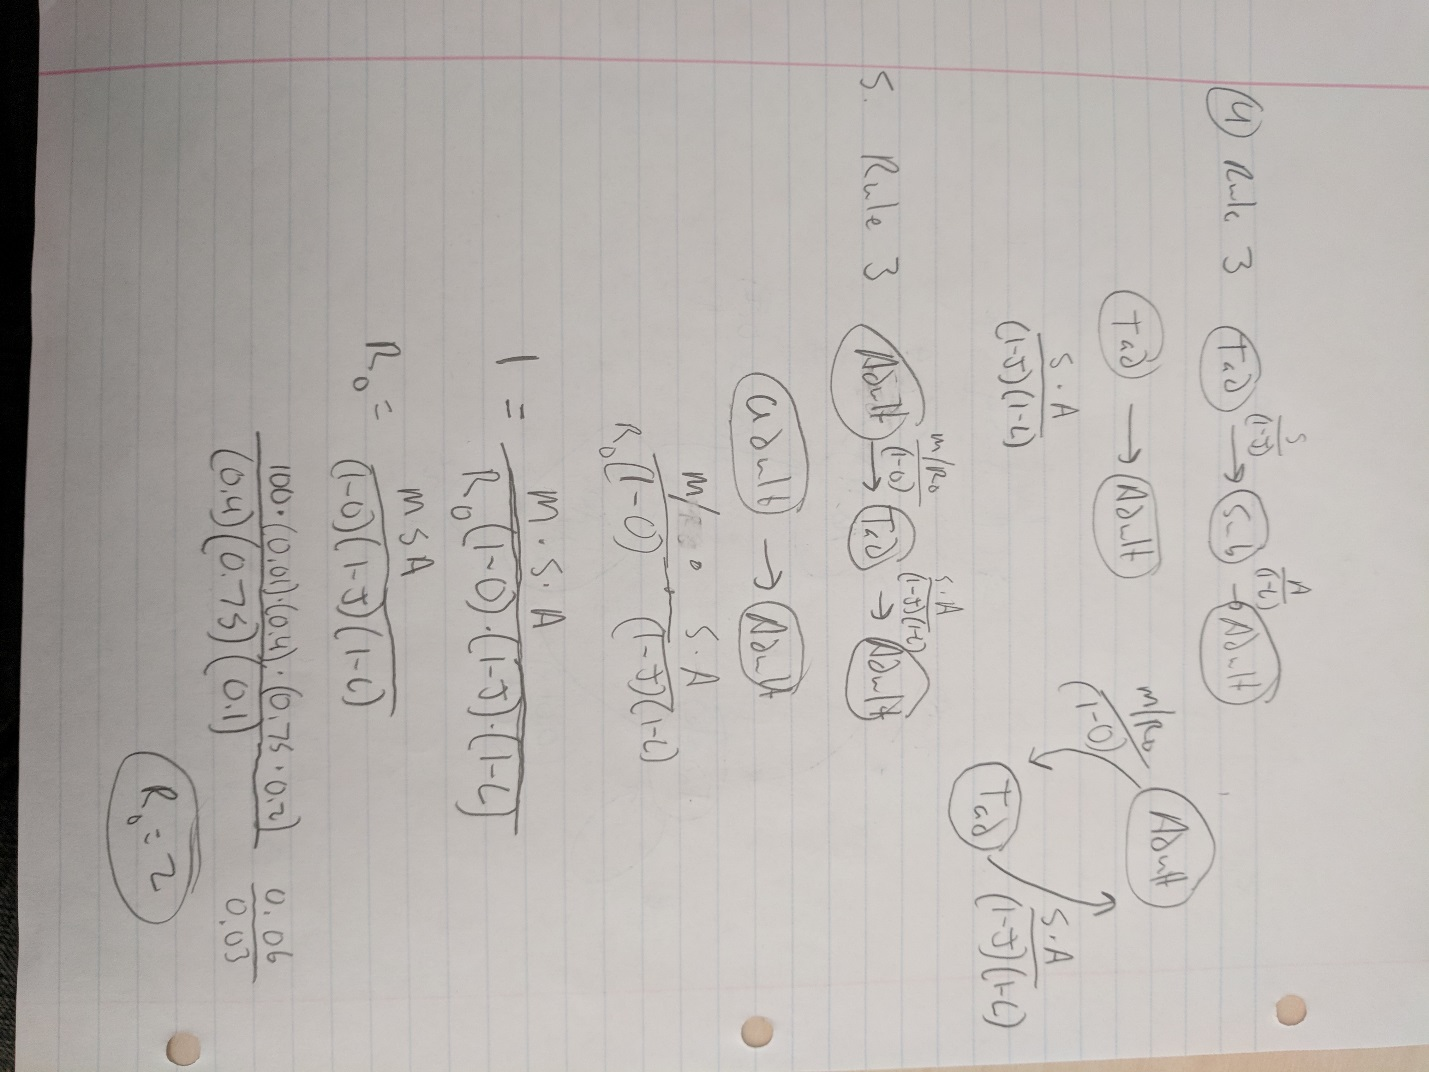 4 Rule 3 Tad → S/(1-J) → Sub → A/(1-L) → Adult
Tad → Adult
S·A/(1-J)(1-L)
Adult
m/R₀/(1-O)
Tad
S·A/(1-J)(1-L)
5. Rule 3 Adult → m/R₀/(1-O) → Tad → S·A/(1-J)(1-L) → Adult
adult → Adult
m/R₀(1-O) · S·A/(1-J)(1-L)
1 = m·S·A/R₀(1-O)·(1-J)·(1-L)
R₀ = mSA/(1-O)(1-J)(1-L)
100·(0.01)·(0.4)·(0.75·0.2)/(0.4)(0.75)(0.1) 0.06/0.03
R₀ = 2